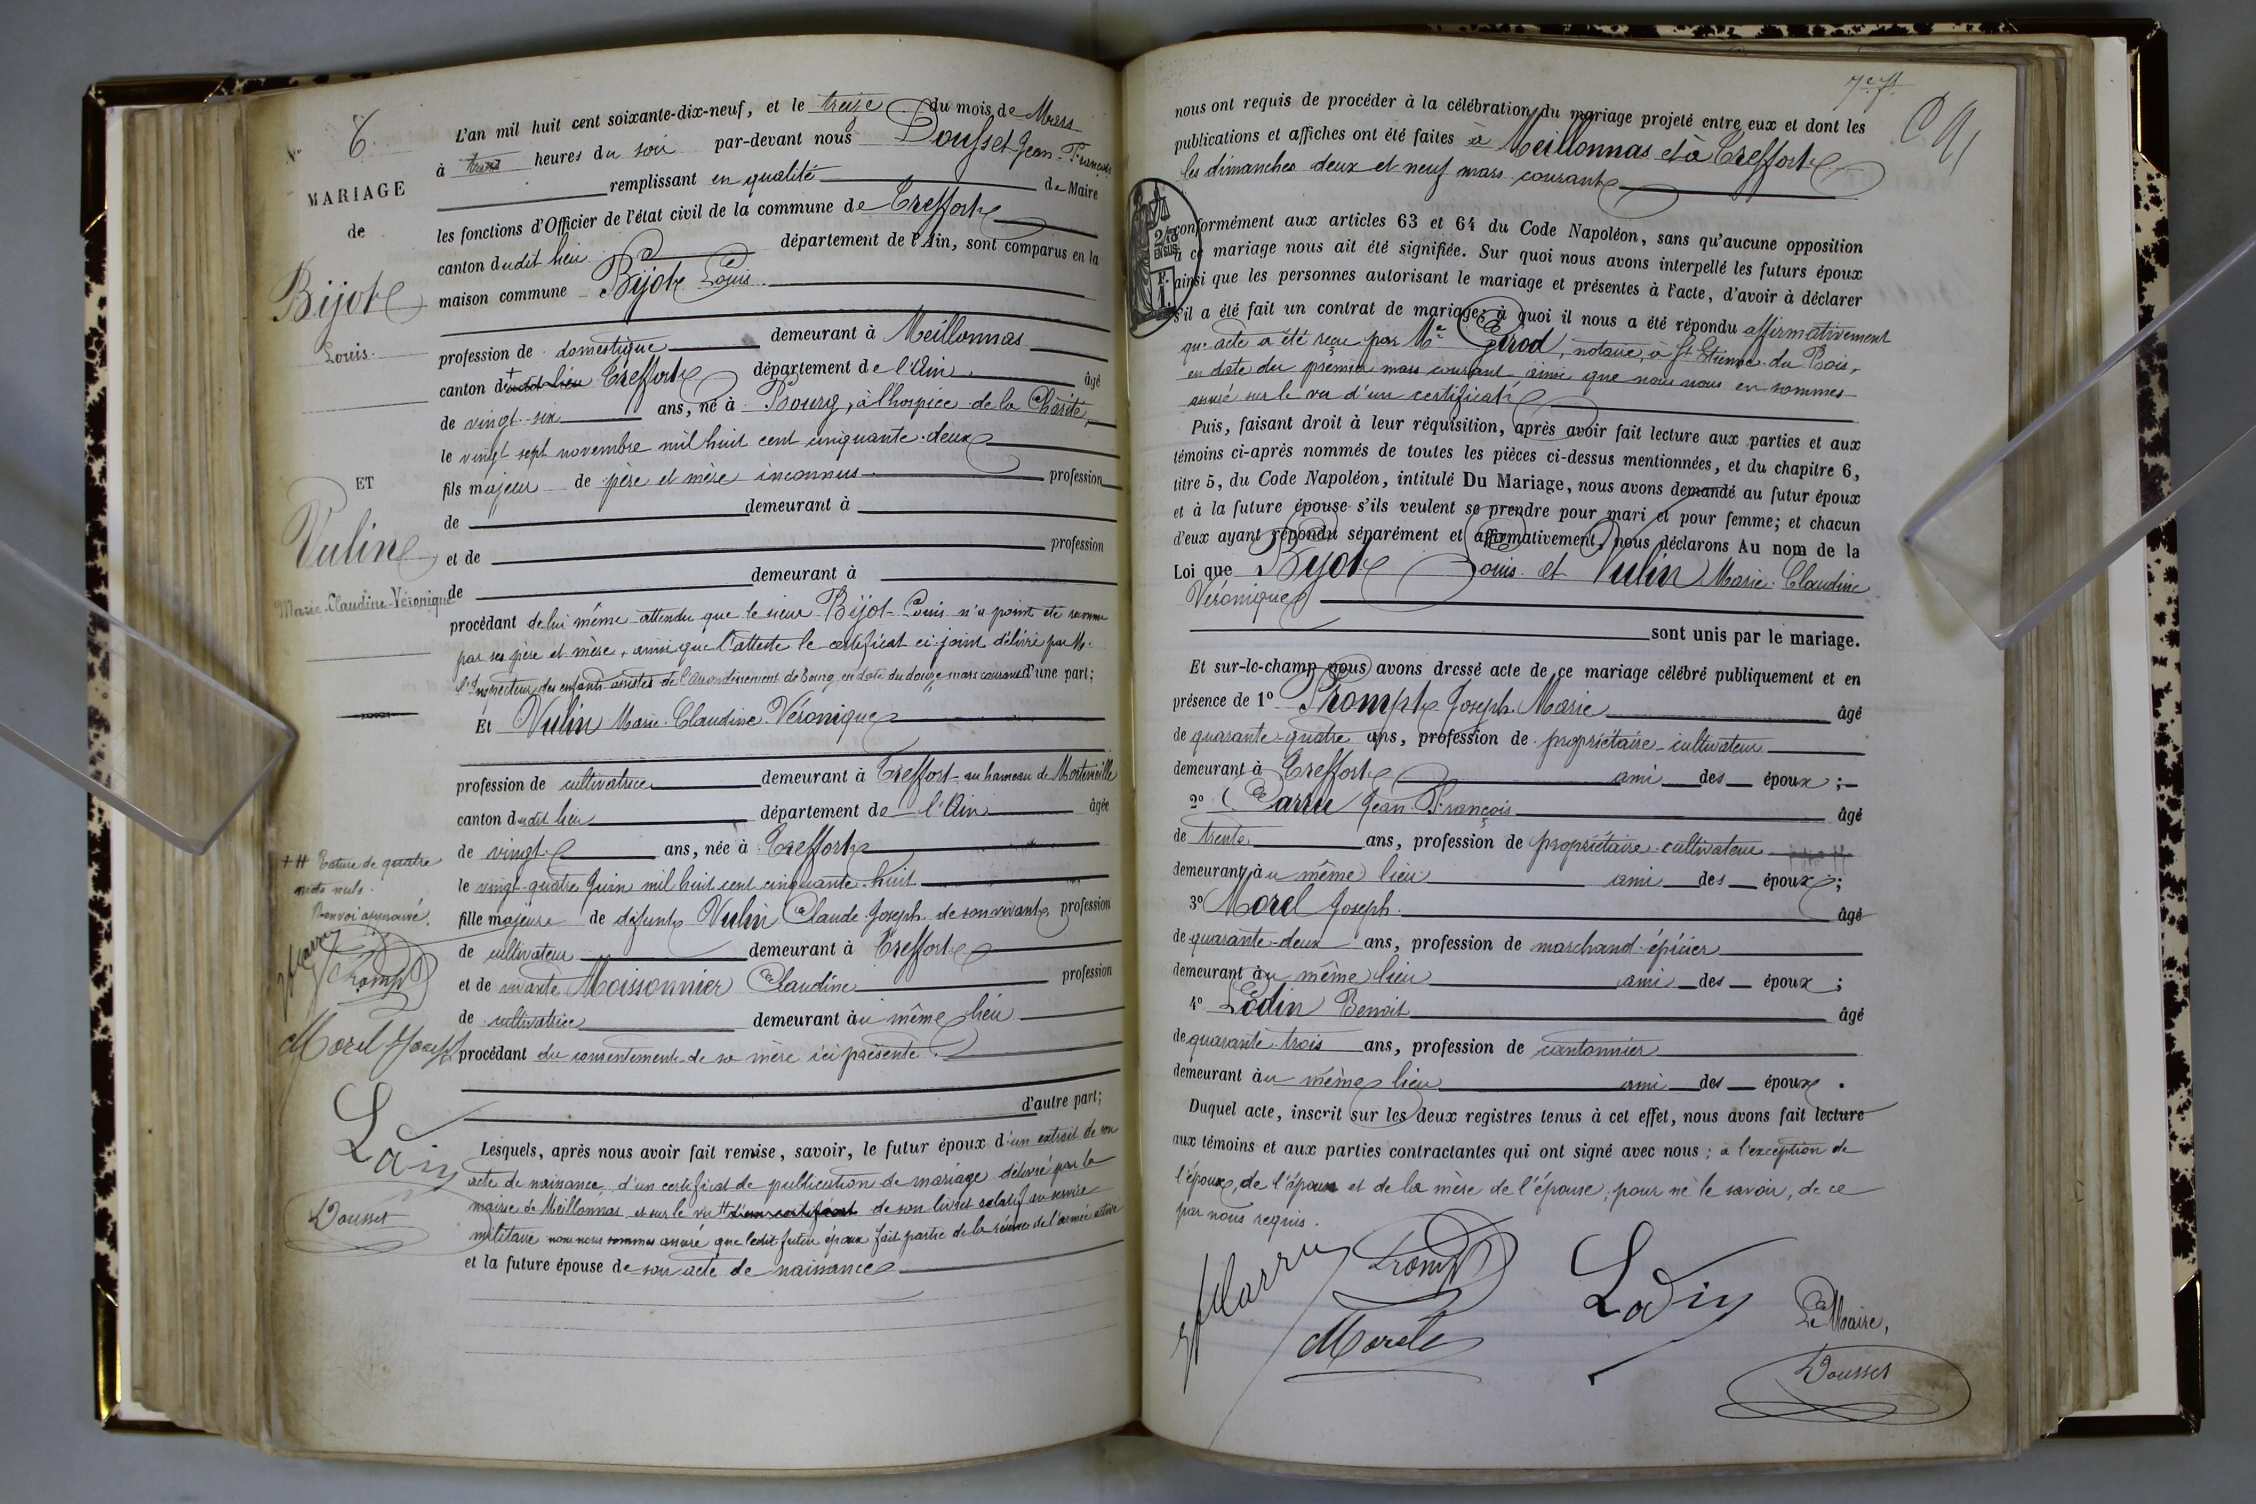 N° 6
MARIAGE
de
Bijot
Louis
ET
Vulin
Marie-Claudine-Véronique
++ Rature de quatre
mots nuls.
Renvoi approuvé.
Morel Joseph
Dousset
L'an mil huit cent soixante-dix-neuf, et le treize du mois de Mars
à trois heures du soir par-devant nous Dousset Jean-François
remplissant en qualité de Maire
les fonctions d'Officier de l'état civil de la commune de Treffort
canton dudit lieu département de l'Ain, sont comparus en la
maison commune Bijot Louis
profession de domestique demeurant à Meillonnas
canton de + dudit lieu Treffort département de l'Ain âgé
de vingt-six ans, né à Bourg, à l'hospice de la Charité,
le vingt sept novembre mil huit cent cinquante-deux
fils majeur de père et mère inconnus profession
de demeurant à
et de profession
de demeurant à
procédant de lui même attendu que le sieur Bijot Louis n'a point été reconnu
par ses père et mère, ainsi que l'atteste le certificat ci-joint délivré par Mr.
l'Inspecteur des enfants assistés de l'arrondissement de Bourg, en date du douze mars courant d'une part;
Et Vulin Marie-Claudine Véronique
profession de cultivatrice demeurant à Treffort au hameau de Montmeille
canton dudit lieu département de l'Ain âgée
de vingt ans, née à Treffort
le vingt-quatre Juin mil huit cent cinquante-huit
fille majeure de défunt Vulin Claude-Joseph de son vivant profession
de cultivateur demeurant à Treffort
et de vivante Moissonnier Claudine profession
de cultivatrice demeurant au même lieu
procédant du consentement de sa mère ici présente.
d'autre part;
Lesquels, après nous avoir fait remise, savoir, le futur époux d'un extrait de son
acte de naissance, d'un certificat de publication de mariage délivré par la
mairie de Meillonnas et sur le vu ++ d'un certificat de son livret relatif au service
militaire nous nous sommes assuré que ledit futur époux fait partie de la réserve de l'armée active
et la future épouse de son acte de naissance
7e f.
nous ont requis de procéder à la célébration du mariage projeté entre eux et dont les
publications et affiches ont été faites à Meillonnas et à Treffort
les dimanches deux et neuf mars courant
conformément aux articles 63 et 64 du Code Napoléon, sans qu'aucune opposition
à ce mariage nous ait été signifiée. Sur quoi nous avons interpellé les futurs époux
ainsi que les personnes autorisant le mariage et présentes à l'acte, d'avoir à déclarer
s'il a été fait un contrat de mariage; à quoi il nous a été répondu affirmativement
que acte a été reçu par Me Girod, notaire, à St Etienne-du-Bois,
en date du premier mars courant ainsi que nous nous en sommes
assuré sur le vu d'un certificat
Puis, faisant droit à leur réquisition, après avoir fait lecture aux parties et aux
témoins ci-après nommés de toutes les pièces ci-dessus mentionnées, et du chapitre 6,
titre 5, du Code Napoléon, intitulé Du Mariage, nous avons demandé au futur époux
et à la future épouse s'ils veulent se prendre pour mari et pour femme; et chacun
d'eux ayant répondu séparément et affirmativement, nous déclarons Au nom de la
Loi que Bijot Louis et Vulin Marie-Claudine
Véronique
sont unis par le mariage.
Et sur-le-champ nous avons dressé acte de ce mariage célébré publiquement et en
présence de 1° Prompt Joseph Marie âgé
de quarante-quatre ans, profession de propriétaire-cultivateur
demeurant à Treffort ami des époux;
2° Carru Jean-François âgé
de trente ans, profession de propriétaire-cultivateur
demeurant au même lieu ami des époux;
3° Morel Joseph âgé
de quarante-deux ans, profession de marchand-épicier
demeurant au même lieu ami des époux;
4° Lodin Benoit âgé
de quarante-trois ans, profession de cantonnier
demeurant au même lieu ami des époux.
Duquel acte, inscrit sur les deux registres tenus à cet effet, nous avons fait lecture
aux témoins et aux parties contractantes qui ont signé avec nous; à l'exception de
l'époux, de l'épouse et de la mère de l'épouse, pour ne le savoir, de ce
par nous requis.
Prompt
Morel
Le Maire,
Dousset